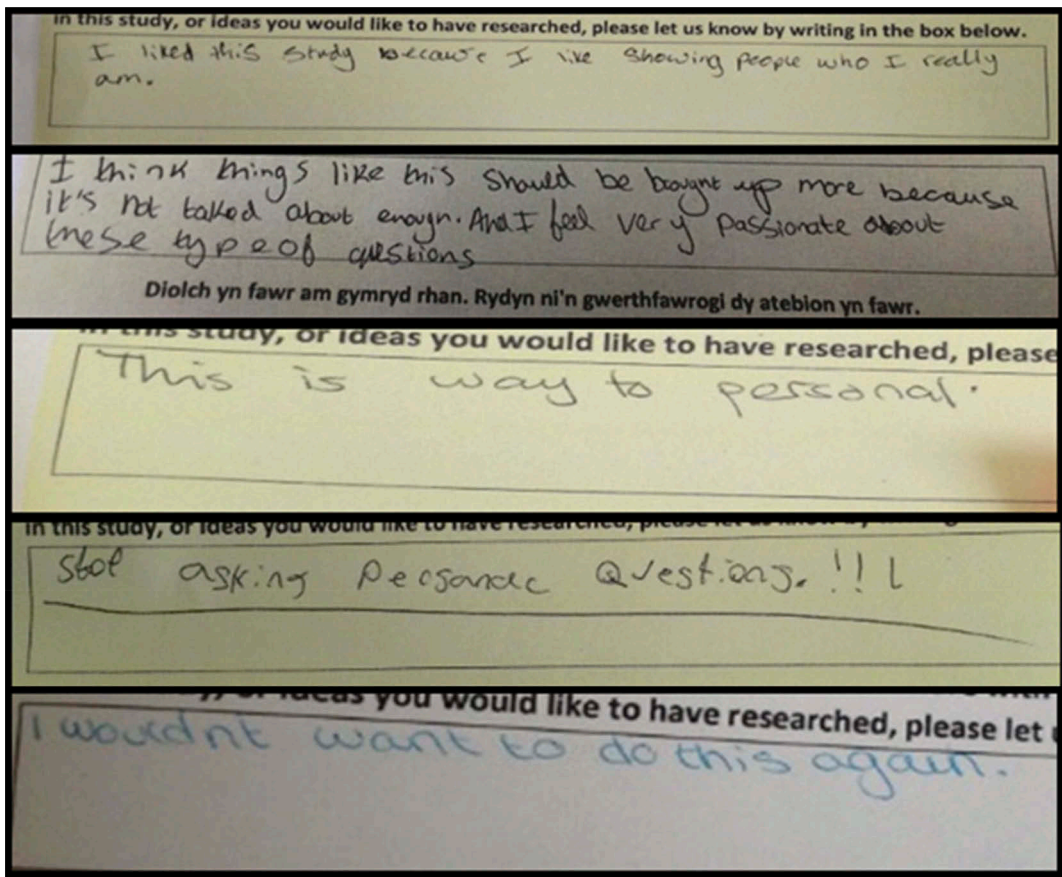 in this study, or ideas you would like to have researched, please let us know by writing in the box below.
I liked this study because I like showing people who I really
am.
I think things like this should be bought up more because
it's not talked about enough. And I feel very passionate about
these type of questions
Diolch yn fawr am gymryd rhan. Rydyn ni'n gwerthfawrogi dy atebion yn fawr.
in this study, or ideas you would like to have researched, please
This is way to personal.
in this study, or ideas you would like to have researched, please let us
stop asking Personal Questions. !!!
ideas you would like to have researched, please let
I wouldnt want to do this again.